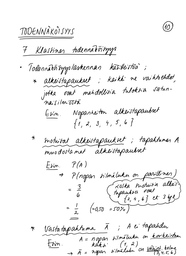 TODENNÄKÖISYYS
7 Klassinen todennäköisyys
• Todennäköisyyslaskennan käsitteitä:
* alkeistapaukset: kaikki ne vaihtoehdot,
jotka ovat mahdollisia tuloksia satun-
naisilmiössä
Esim Nopanheiton alkeistapaukset
{1, 2, 3, 4, 5, 6}
* suotuisat alkeistapaukset: tapahtuman A
muodostamat alkeistapaukset
Esim P(A)
= P(nopan silmäluku on parillinen)
= 3/6
= 1/2 (= 0,50 = 50%)
* Vastatapahtuma Ā: A ei tapahdu
Esim A = nopan silmäluku on korkeintaan
kaksi {1, 2}
→ Ā = nopan silmäluku on